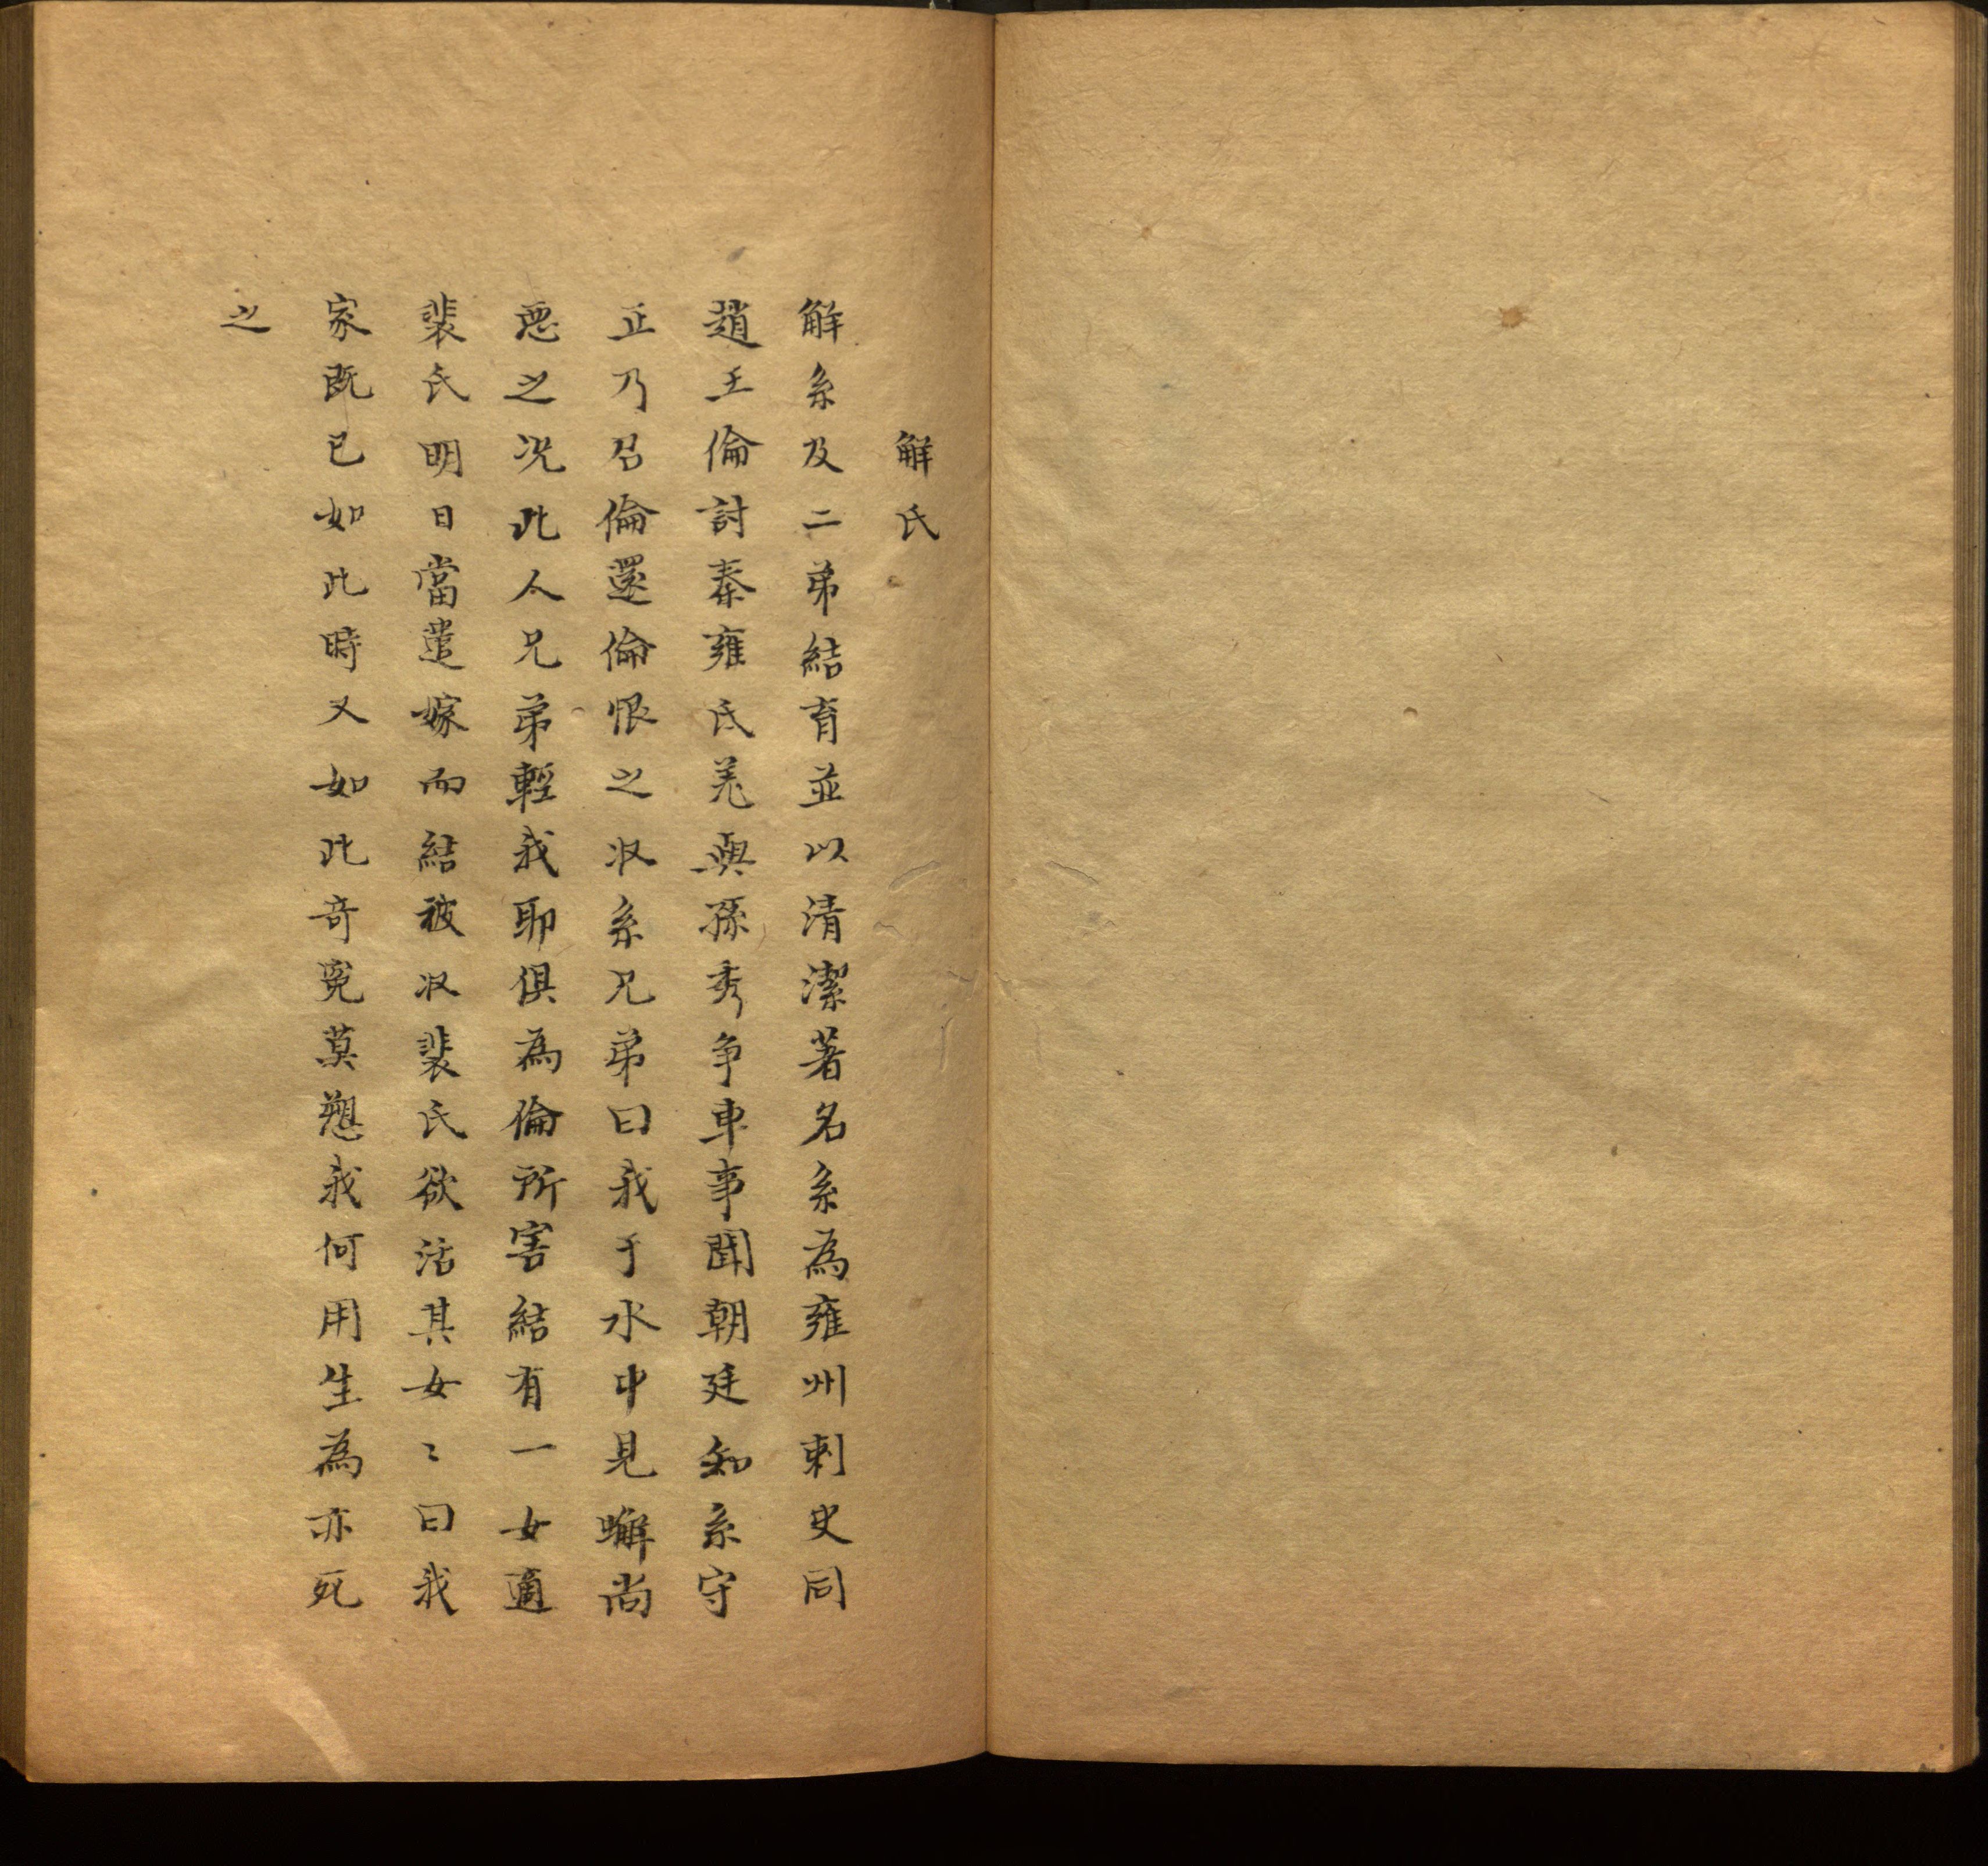 解氏
解系及二弟結育並以清潔著名系為雍州刺史同
趙王倫討秦雍氐羌與孫秀爭車事聞朝廷知系守
正乃召倫還倫恨之収系兄弟曰我于水中見蠏尚
惡之况此人兄弟輕我耶俱為倫所害結有一女適
裴氏明日當遣嫁而結被収裴氏欲活其女〻曰我
家既已如此時又如此奇冤莫愬我何用生為亦死
之